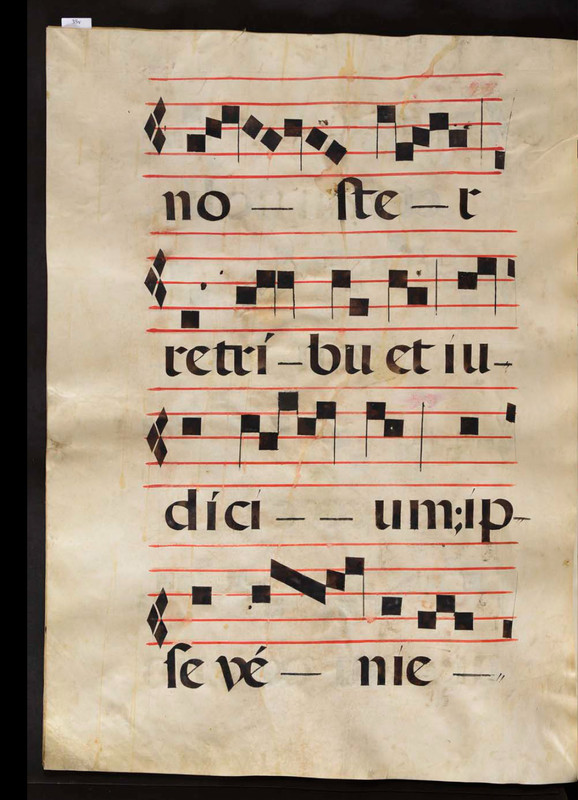 no — ſte — r
retrí — bu et iu -
dící — — um; ip -
ſe vé — nie —